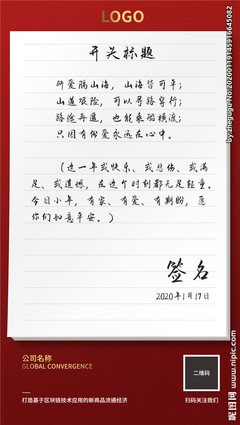 LOGO
开头标题
所爱隔山海，山海皆可平；
山道艰险，可以寻路穿行；
路途再遥，也能乘船横流；
只因有份爱永远在心中。
（这一年或快乐、或悲伤、或满
足、或遗憾，在这个时刻都无足轻重。
今日小年，有家、有爱、有期盼，愿
你们如意平安。）
签名
2020年1月17日
公司名称
GLOBAL CONVERGENCE
二维码
打造基于区块链技术应用的新商品流通经济
扫码关注我们
昵图网 www.nipic.com